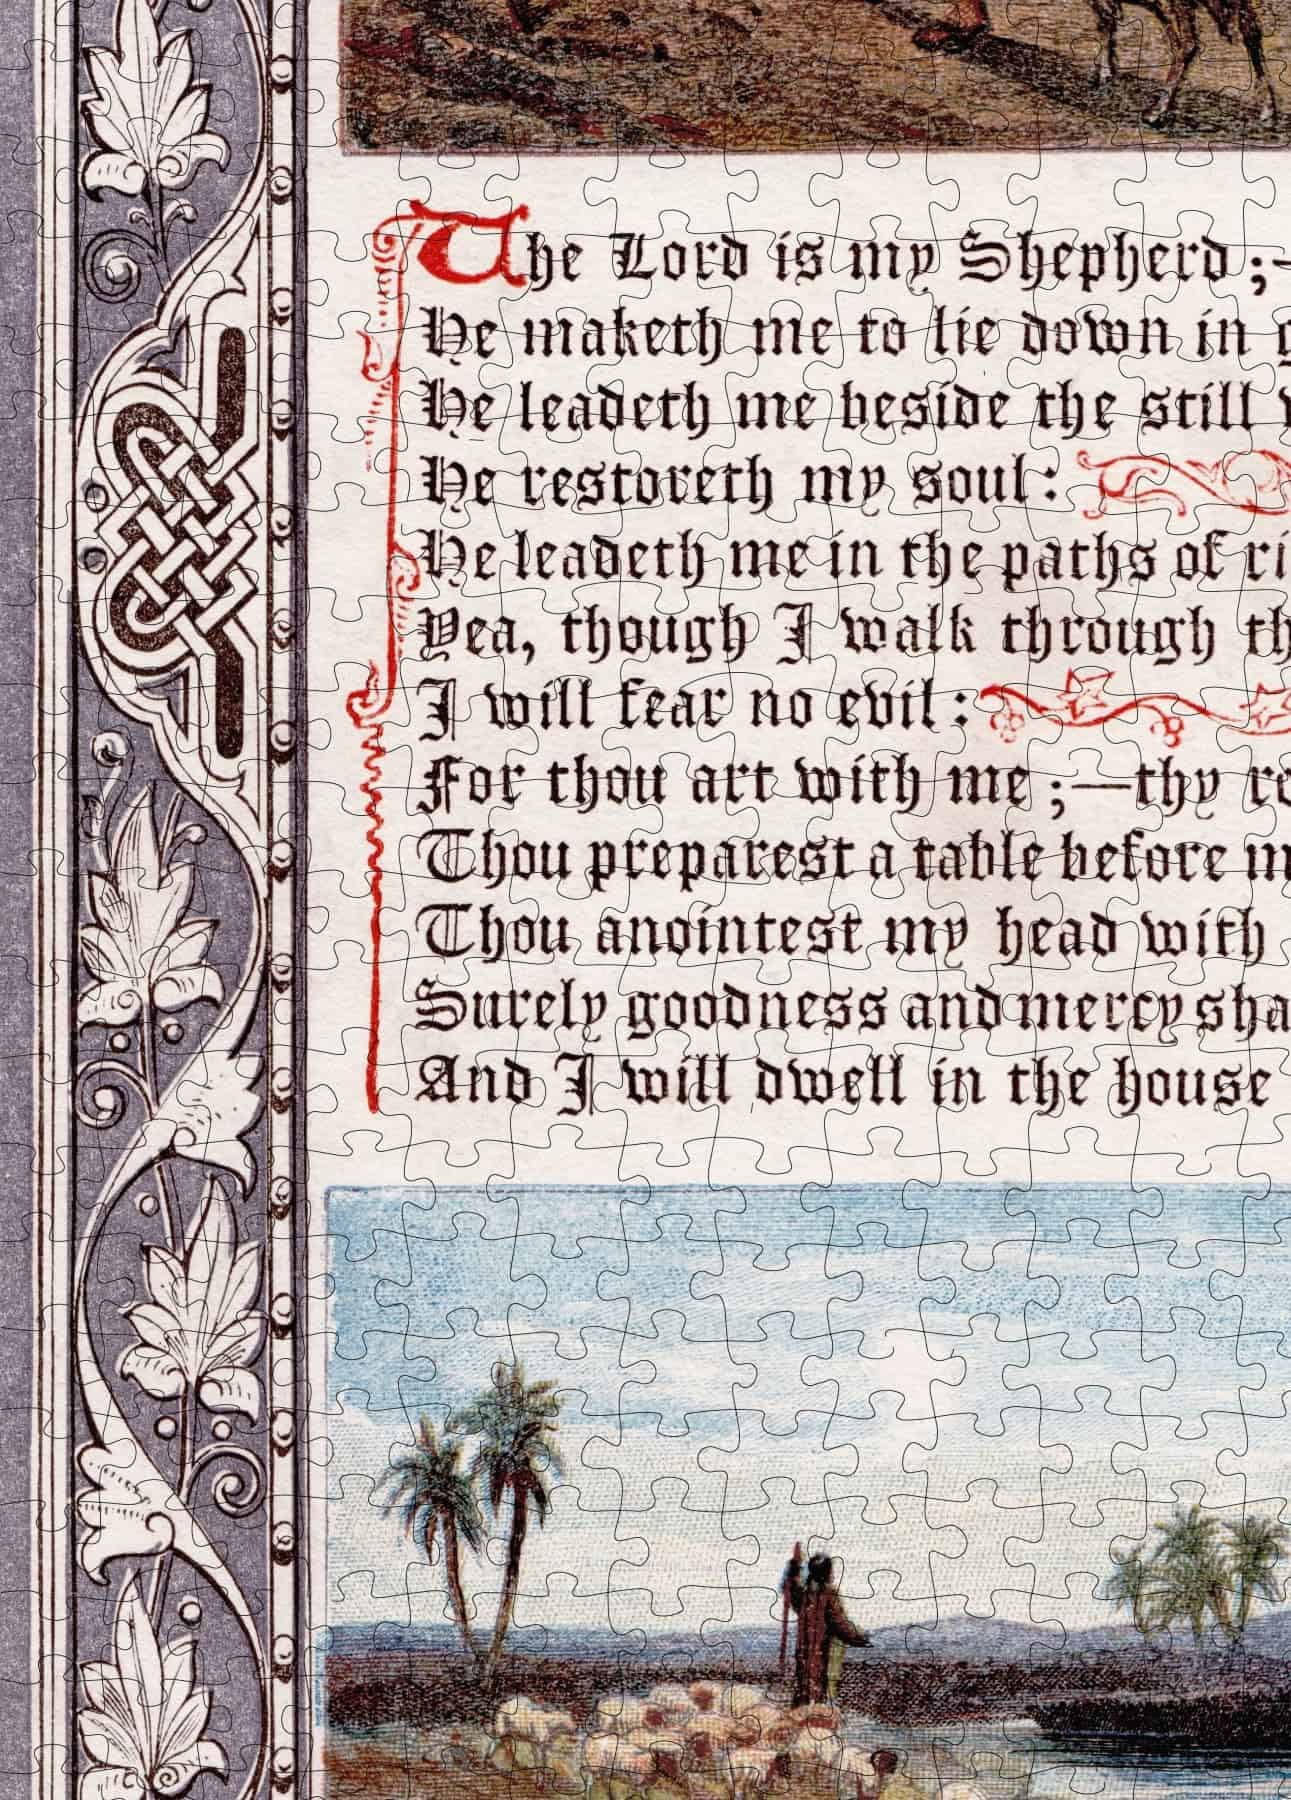 The Lord is my Shepherd;—
He maketh me to lie down in g
He leadeth me beside the still
He restoreth my soul:
He leadeth me in the paths of ri
Yea, though I walk through th
I will fear no evil:
For thou art with me;—thy ro
Thou preparest a table before m
Thou anointest my head with
Surely goodness and mercy sha
And I will dwell in the house